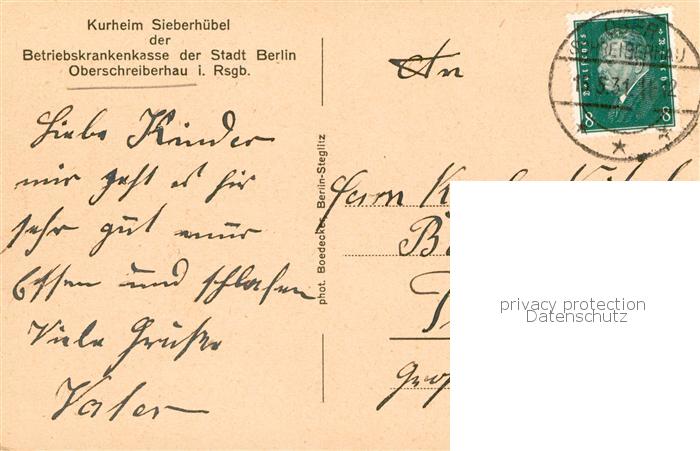 Kurheim Sieberhübel
der
Betriebskrankenkasse der Stadt Berlin
Oberschreiberhau i. Rsgb.
Liebe Kinder
mir geht es hir
sehr gut nur
Essen und schlafen
Viele Grüße
Vater
phot. Boedecker, Berlin-Steglitz
An
8 8
privacy protection
Datenschutz